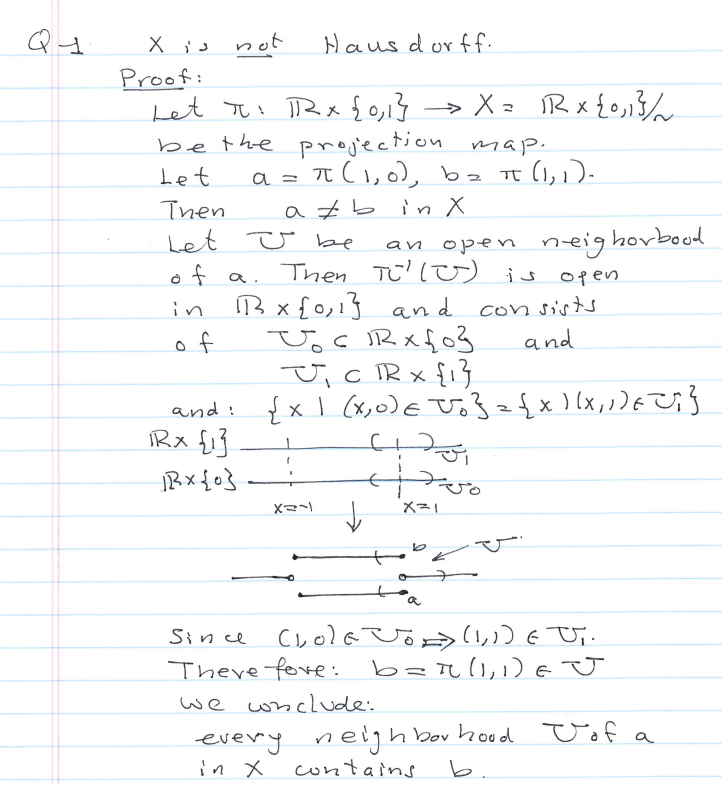 Q-1 X is not Hausdorff.
Proof:
Let π: ℝ x {0,1} → X = ℝ x {0,1}/~
be the projection map.
Let a = π(1,0), b = π(1,1).
Then a ≠ b in X
Let U be an open neighorbood
of a. Then π⁻¹(U) is open
in ℝ x {0,1} and consists
of U₀ ⊂ ℝ x {0} and
U₁ ⊂ ℝ x {1}
and: {x | (x,0) ∈ U₀} = {x | (x,1) ∈ U₁}
ℝ x {1} U₁
ℝ x {0} U₀
x=-1 x=1
b U
a
Since (1,0) ∈ U₀ ⇒ (1,1) ∈ U₁.
Therefore: b = π(1,1) ∈ U
we conclude:
every neighborhood U of a
in X contains b.